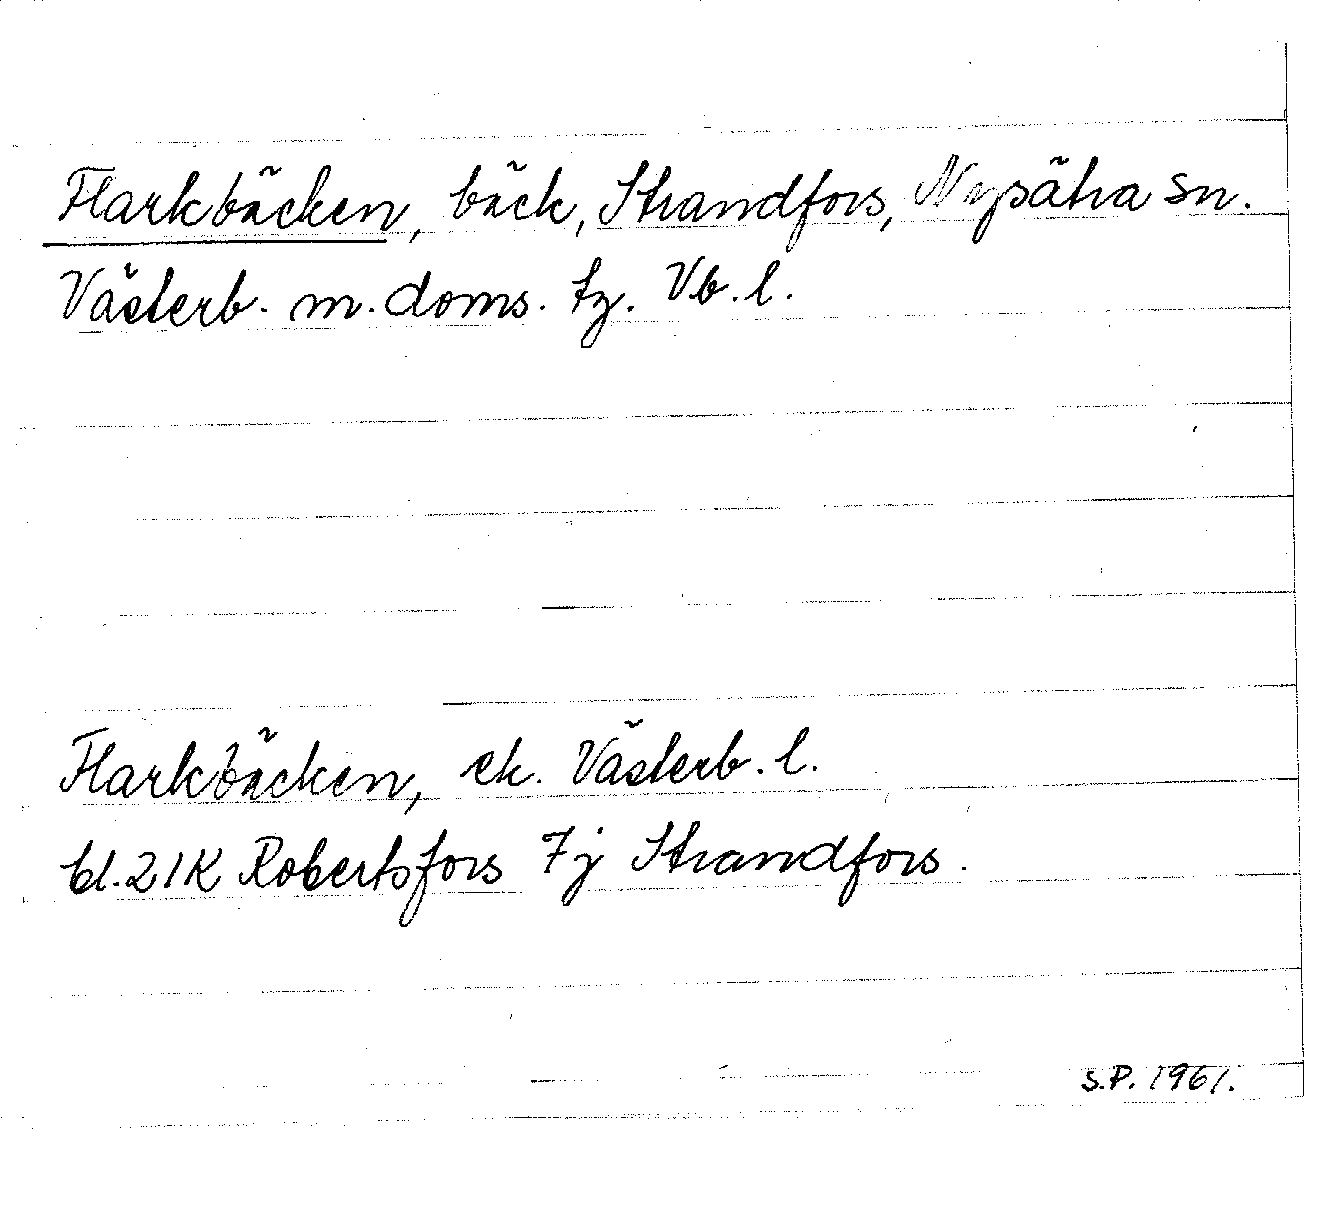 Flarkbäcken, bäck, Strandfors, Nysätra sn.
Västerb. m. doms. tg. Vb. l.
Flarkbäcken, ek. Västerb. l.
bl. 21K Robertsfors 7j Strandfors.
S.P. 1961.